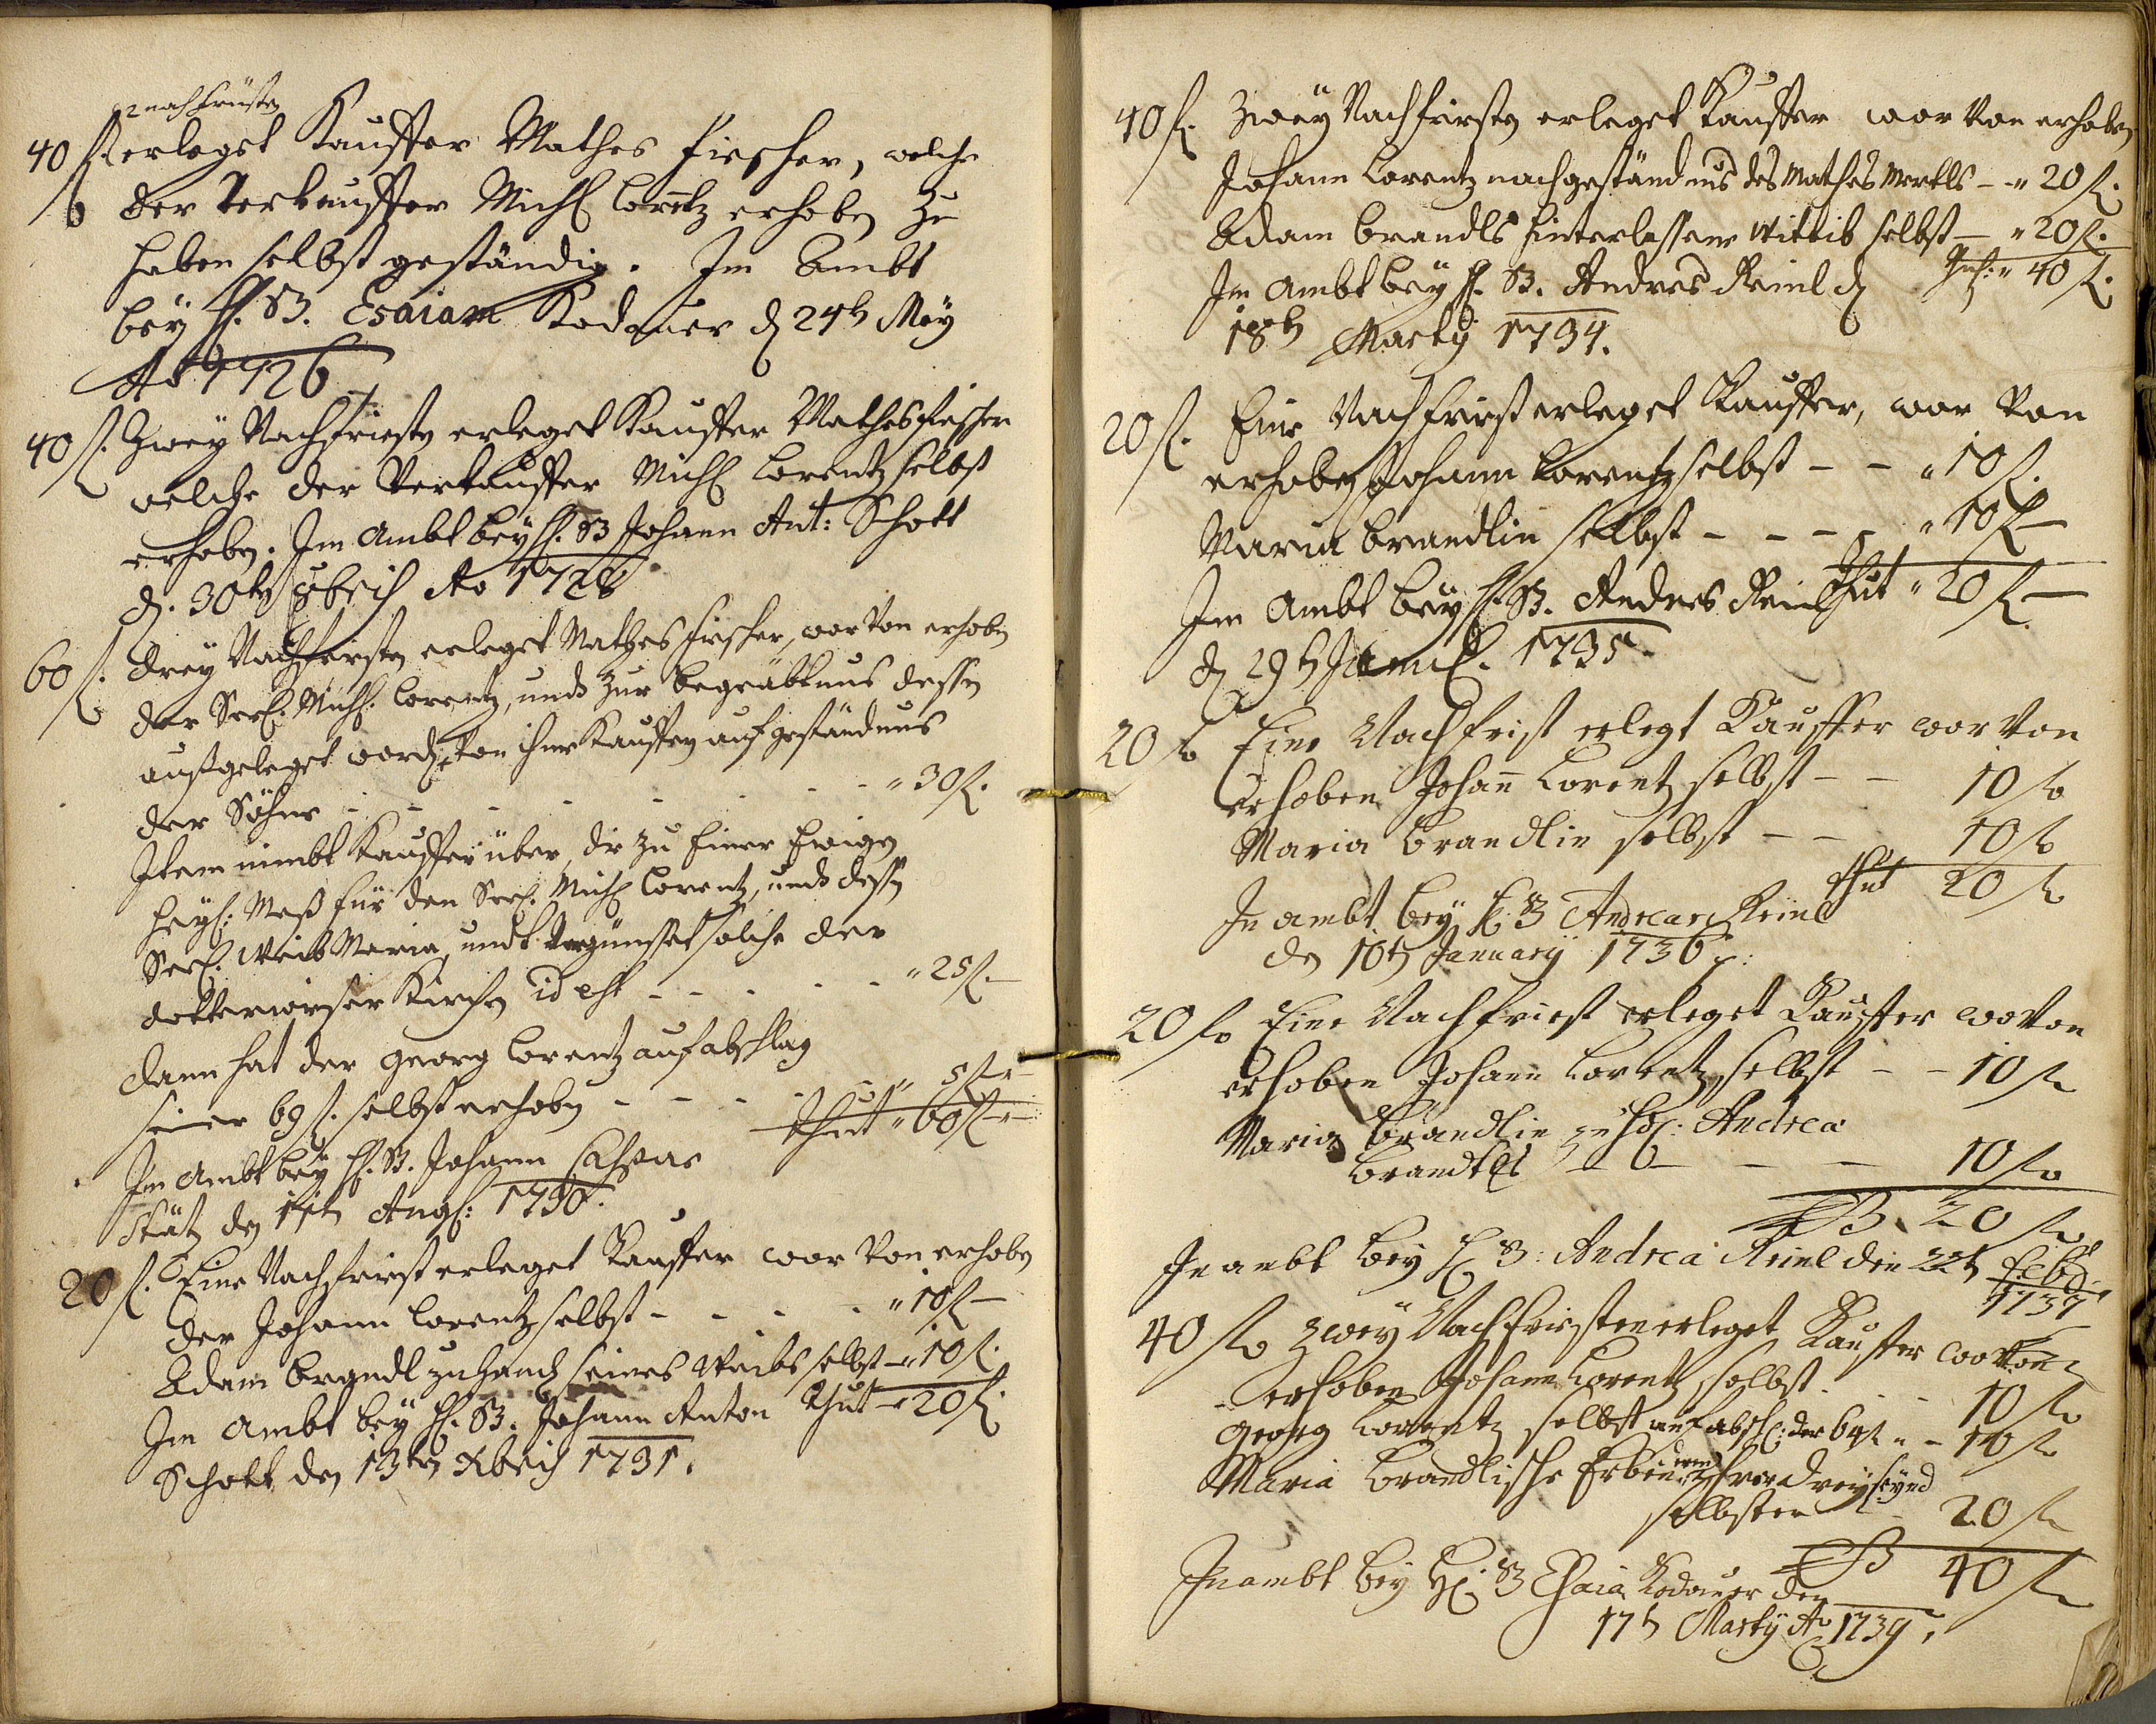 2 nachfrüsten
40 f. erleget Kauffer Mathes Fiescher, welche
der Verkauffer Michl Lorentz erhoben zu
haben selbst geständig. Im Ambt
bey H. B. Esaiam Kodauer d 24t May
Ao 1726
40 f. Zwey Nachfriesten erleget Kauffer Mathes Fiescher
welche der Verkauffer Michl Lorentz selbst
erhoben. Im Ambt bey H. B Johann Ant: Schott
d. 30ten Xbris Ao 1728
60 f. Drey Nachfristen erleget Mathes Fiescher, wor von erhoben
der Seel. Michl. Lorentz, undt zur begräbtnus dessen
außgeleget worden von ihme Kauffern auf geständnus
der Söhne - - - - - - - " 30 f.
Item nimbt Kauffer über, die zu Einer Ewigen
Heyl: Meß für den Seel. Michl Lorentz, undt dessen
Seel. Weib Maria, undt solche der
Kirchen id est - - - - - " 25 f.
Dann hat der Georg Lorentz auf abschlag
seiner 69 f. selbst erhoben - - - - " 5 f -
thut " 60 f -
Im Ambt bey H. B. Johann Caspar
Stätz den 11ten Augs: 1730.
20 f. Eine Nachfriest erleget Kauffer wor von erhoben
der Johann Lorentz selbst - - - - " 10 f -
Adam Brandl zuhand seines Weibs selbst - " 10 f.
Im Ambt bey H. B. Johann Anton thut - " 20 f.
Schott den 13ten Xbris 1731.
40 f. Zwey Nachfristen erleget Kauffer wor von erhoben
Johann Lorentz nach geständnus des Mathes Merkls - " 20 f.
Adam Brandls hinterlassene Wittib selbst - " 20 f.
Im Ambt bey H. B. Andreas Reinl d " 40 f.
18t Marty 1734.
20 f. Eine Nachfriest erleget Kauffer, wor von
erhoben Johann Lorentz selbst - - " 10 f.
Maria Brandlin selbst - - - - " 10 f -
Im Ambt bey H. B. Andres Reinl thut " 20 f -
d 29t . 1735.
20 f Eine Nachfrist erlegt Kauffer wor von
erhoben Johann Lorentz selbst - - 10 f
Maria Brandlin selbst - - 10 f
thut 20 f
In ambt bey H. B Andreas Reinl
den 10t January 1736.
20 f Eine Nachfriest erleget Kauffer wovon
erhoben Johann Lorentz selbst - - 10 f
Maria Brandlin Andrea
Brandtl - - - - 10 f
20 f
In ambt bey H B: Andrea Reinl den 22t Feb.
1737
40 f Zwey Nachfristen erleget Kauffer wovon
erhoben Johann Lorentz selbst - - - 10 f
Georg Lorentz selbst auf abschl: der 64 f - - 10 f
Maria Brandlische Erben drey seynd
selbsten - 20 f
40 f
In ambt bey H. B Esaia Kodauer den
17t Marty Ao 1739.